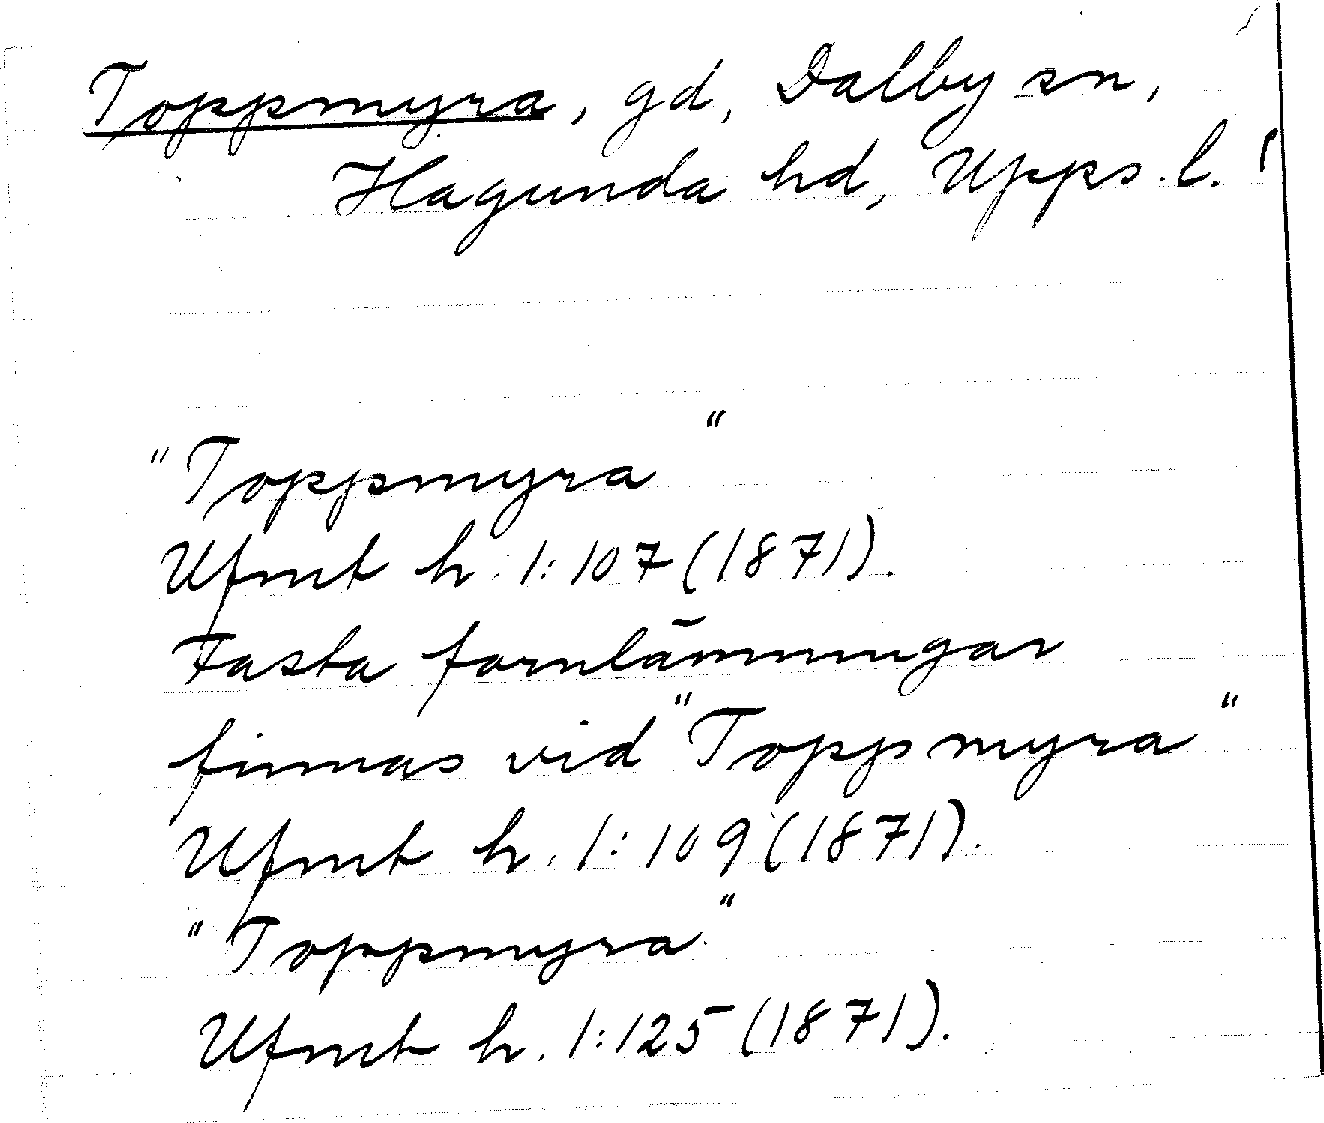 Toppmyra, gd, Dalby sn,
Hagunda hd, Upps. l.
"Toppmyra"
Ufmt h. 1:107 (1871).
Fasta fornlämningar
finnas vid "Toppmyra"
Ufmt h. 1:109 (1871).
"Toppmyra"
Ufmt h. 1:125 (1871).